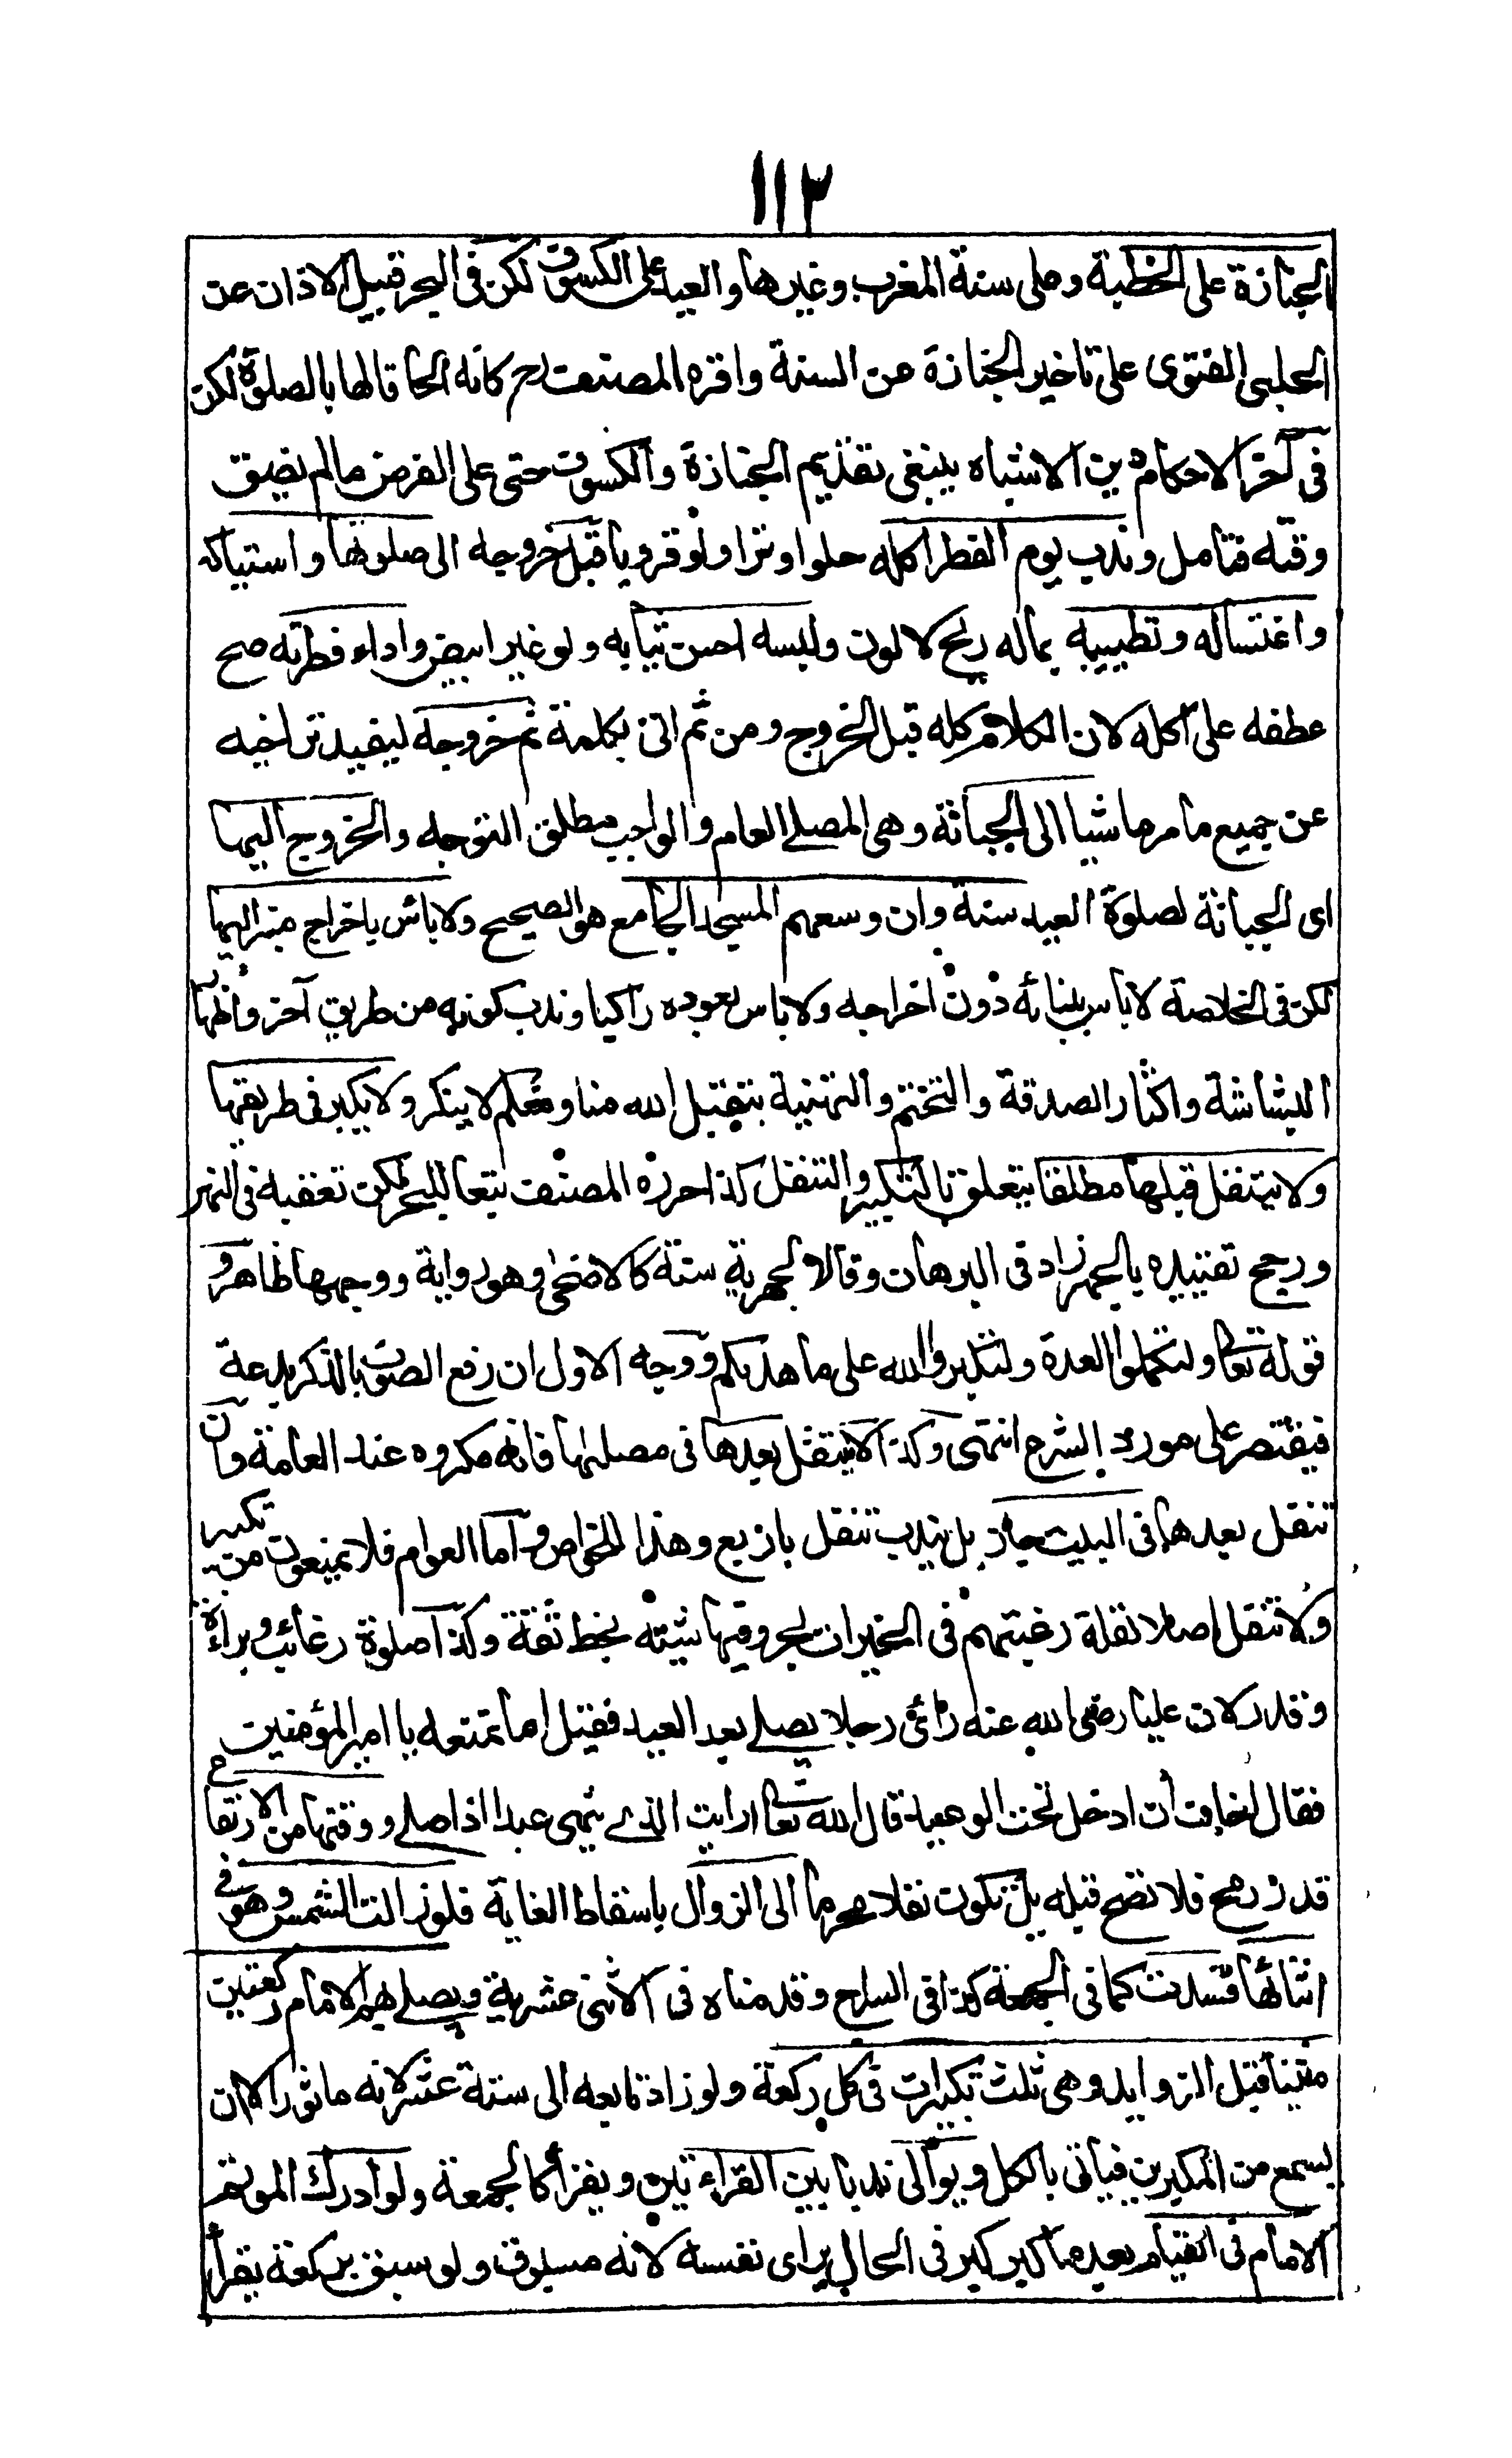 ١١٣
الجنازة على الخطبة وعلى سنة المغرب وغيرها والعيد على الكسوف لكن في البحر قبيل الاذان عن
الحلبي الفتوى على تاخير الجنازة عن السنة واقره المصنف كانه الحاقا لها بالصلوة لكن
في آخر الاحكام دين الاشباه ينبغي تقديم الجنازة والكسوف حتى على الفرض مالم يضيق
وقته فتامل وندب يوم الفطر اكله حلوا وترا ولو قرويا قبل خروجه الى صلوتها واستياكه
واغتساله وتطييبه بماله ريح لا لون ولبسه احسن ثيابه ولو غير ابيض واداء فطرته صح
عطفه على اكله لان الكلام كله قبل الخروج ومن ثم اتى بكلمة ثم خروجه ليفيد تراخيه
عن جميع مامر ماشيا الى الجبانة وهى المصلے العام والواجب مطلق التوجه والخروج اليها
اى الجبانة لصلوة العيد سنة وان وسعهم المسجد الجامع هو الصحيح ولاباس باخراج منبر اليها
لكن في الخلاصة لاباس ببنائه دون اخراجه ولاباس بعوده راكبا وندب كونه من طريق آخر واظهار
البشاشة واكثار الصدقة والتختم والتهنية بتقبل الله منا ومنكم لا ينكر ولا يكبر في طريقها
ولا يتنفل قبلها مطلقا يتعلق بالتكبير والتنفل كذا حرره المصنف تبعا للبحر لكن تعقبه في النهر
ورجح تقييده بالجهر زاد في البرهان وقالا الجهر به سنة كالاضحى وهو رواية ووجهها ظاهر و
قوله تعا ولتكملوا العدة ولتكبروا الله على ما هديكم ووجه الاول ان رفع الصوت بالذكر بدعة
فيقتصر على مورد الشرع انتهى وكذا لا يتنفل بعدها في مصلاها فانه مكروه عند العامة وان
تنفل بعدها في البيت جاز بل يندب تنفل باربع وهذا للخواص واما العوام فلا يمنعون من تكبير
ولا تنفل اصلا لقلة رغبتهم في الخيرات بحر وفيها نيته بخط ثقة وكذا صلوة رغائب وبراءة
وقد ركان عليا رضى الله عنه رأى رجلا يصلے بعد العيد فقيل اما تمنعه يا امير المؤمنين
فقال اخاف ان ادخل تحت الوعيد قال الله تعا ارايت الذے ينهى عبدا اذا صلے ووقتها من الارتفاع
قدر رمح فلا تصح قبله بل تكون نفلا محرما الى الزوال باسقاط الغاية فلو زالت الشمس وهو في
اثنائها فسدت كما في الجمعة كذا في السراج وقدمناه في الاثنى عشرية ويصلے بهم الامام ركعتين
مثنيا قبل الزوايد وهى ثلث تكبيرات في كل ركعة ولو زاد تابعه الى ستة عشر لانه ماثور الا ان
يسمع من المكبرين فياتى بالكل ويوالى ندبا بين القراءتين ويقرأ كالجمعة ولو ادرك الموتم
الامام في القيام بعد ما كبر كبر في الحال براى نفسه لانه مسبوق ولو سبق بركعة يقرأ